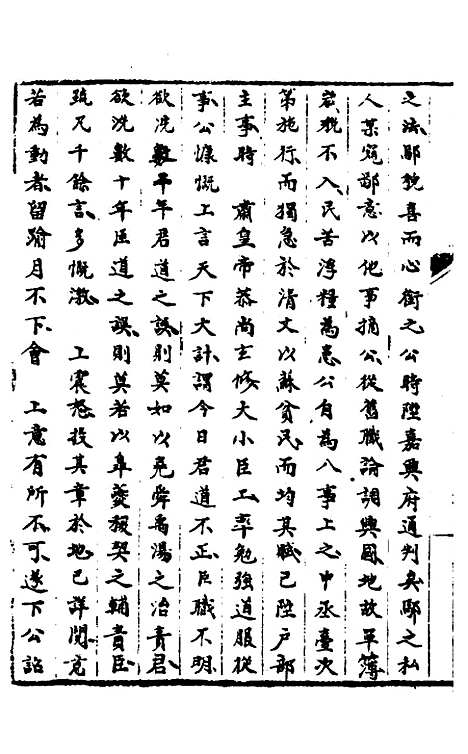 之法鄢貌喜而心銜之公時陞嘉興府通判矣鄢之私
人某寃鄢意以他事摘公從舊職論調興國地故單簿
歲稅不入民苦浮糧為患公自為八事上之中丞臺次
第施行而獨急於清丈以蘇貧民而均其賦已陞戶部
主事時　肅皇帝恭尚玄修大小臣工率勉強道服從
事公慷慨上言天下大計謂今日君道不正臣職不明
欲洗數千年君道之誤則莫如以堯舜禹湯之治責君
欲洗數十年臣道之誤則莫若以皐夔稷契之輔責臣
疏凡千餘言多慨激　上震怒投其章於地已詳閱竟
若為動者留踰月不下會　上意有所不可遂下公詔